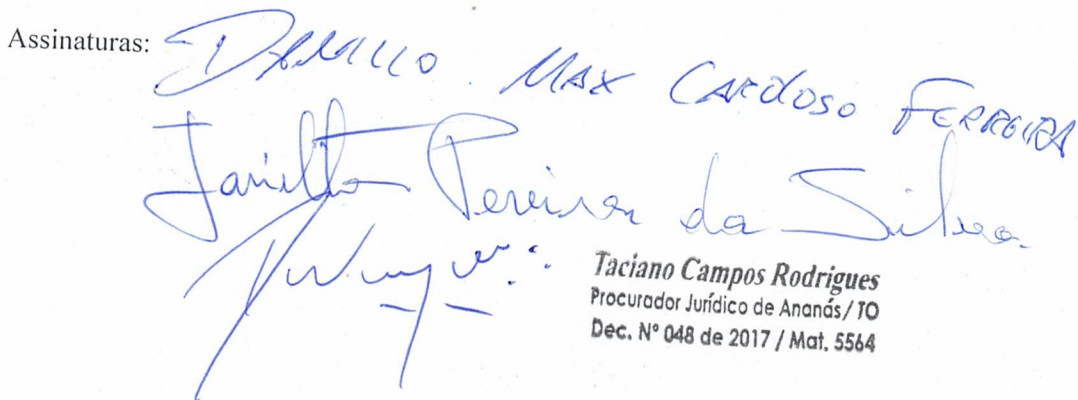 Assinaturas: Danillo Max Cardoso Ferreira
Janilton Pereira da Silva
Taciano Campos Rodrigues
Procurador Jurídico de Ananás/TO
Dec. Nº 048 de 2017 / Mat. 5564